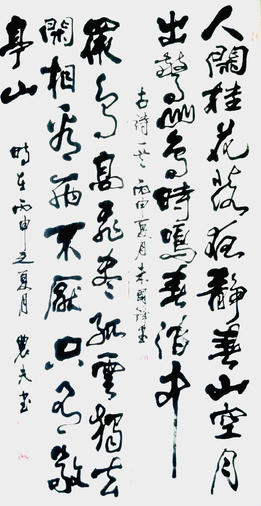 人閑桂花落夜靜春山空月
出驚山鳥時鳴春澗中
古詩一首丙申夏月書
衆鳥高飛盡孤雲獨去
閑相看兩不厭只有敬
亭山
時在丙申之夏月農夫書